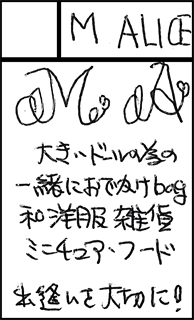 M ALICE
M A
大きいドールの為の
一緒におでかけbag
和洋服雑貨
ミニチュア・フード
出逢いを大切に!